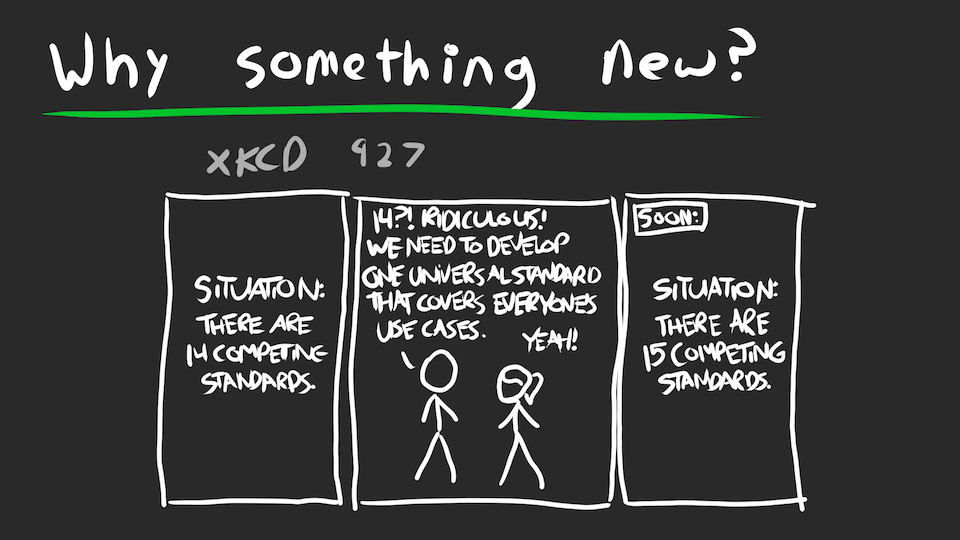 Why something new?
XKCD 927
SITUATION:
THERE ARE
14 COMPETING
STANDARDS.
14?! RIDICULOUS!
WE NEED TO DEVELOP
ONE UNIVERSAL STANDARD
THAT COVERS EVERYONES
USE CASES.
YEAH!
SOON:
SITUATION:
THERE ARE
15 COMPETING
STANDARDS.